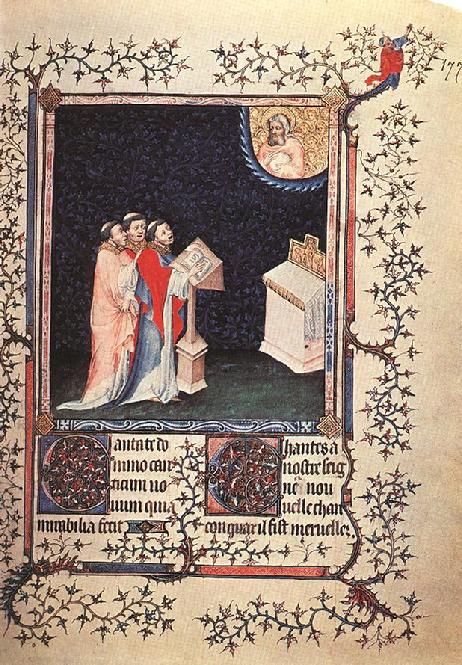 Cantate do
mino can
ticum no
uum quia
mirabilia fecit
Chantes a
nostre seig
nouu
uelle chan
con quar il fist merueilles